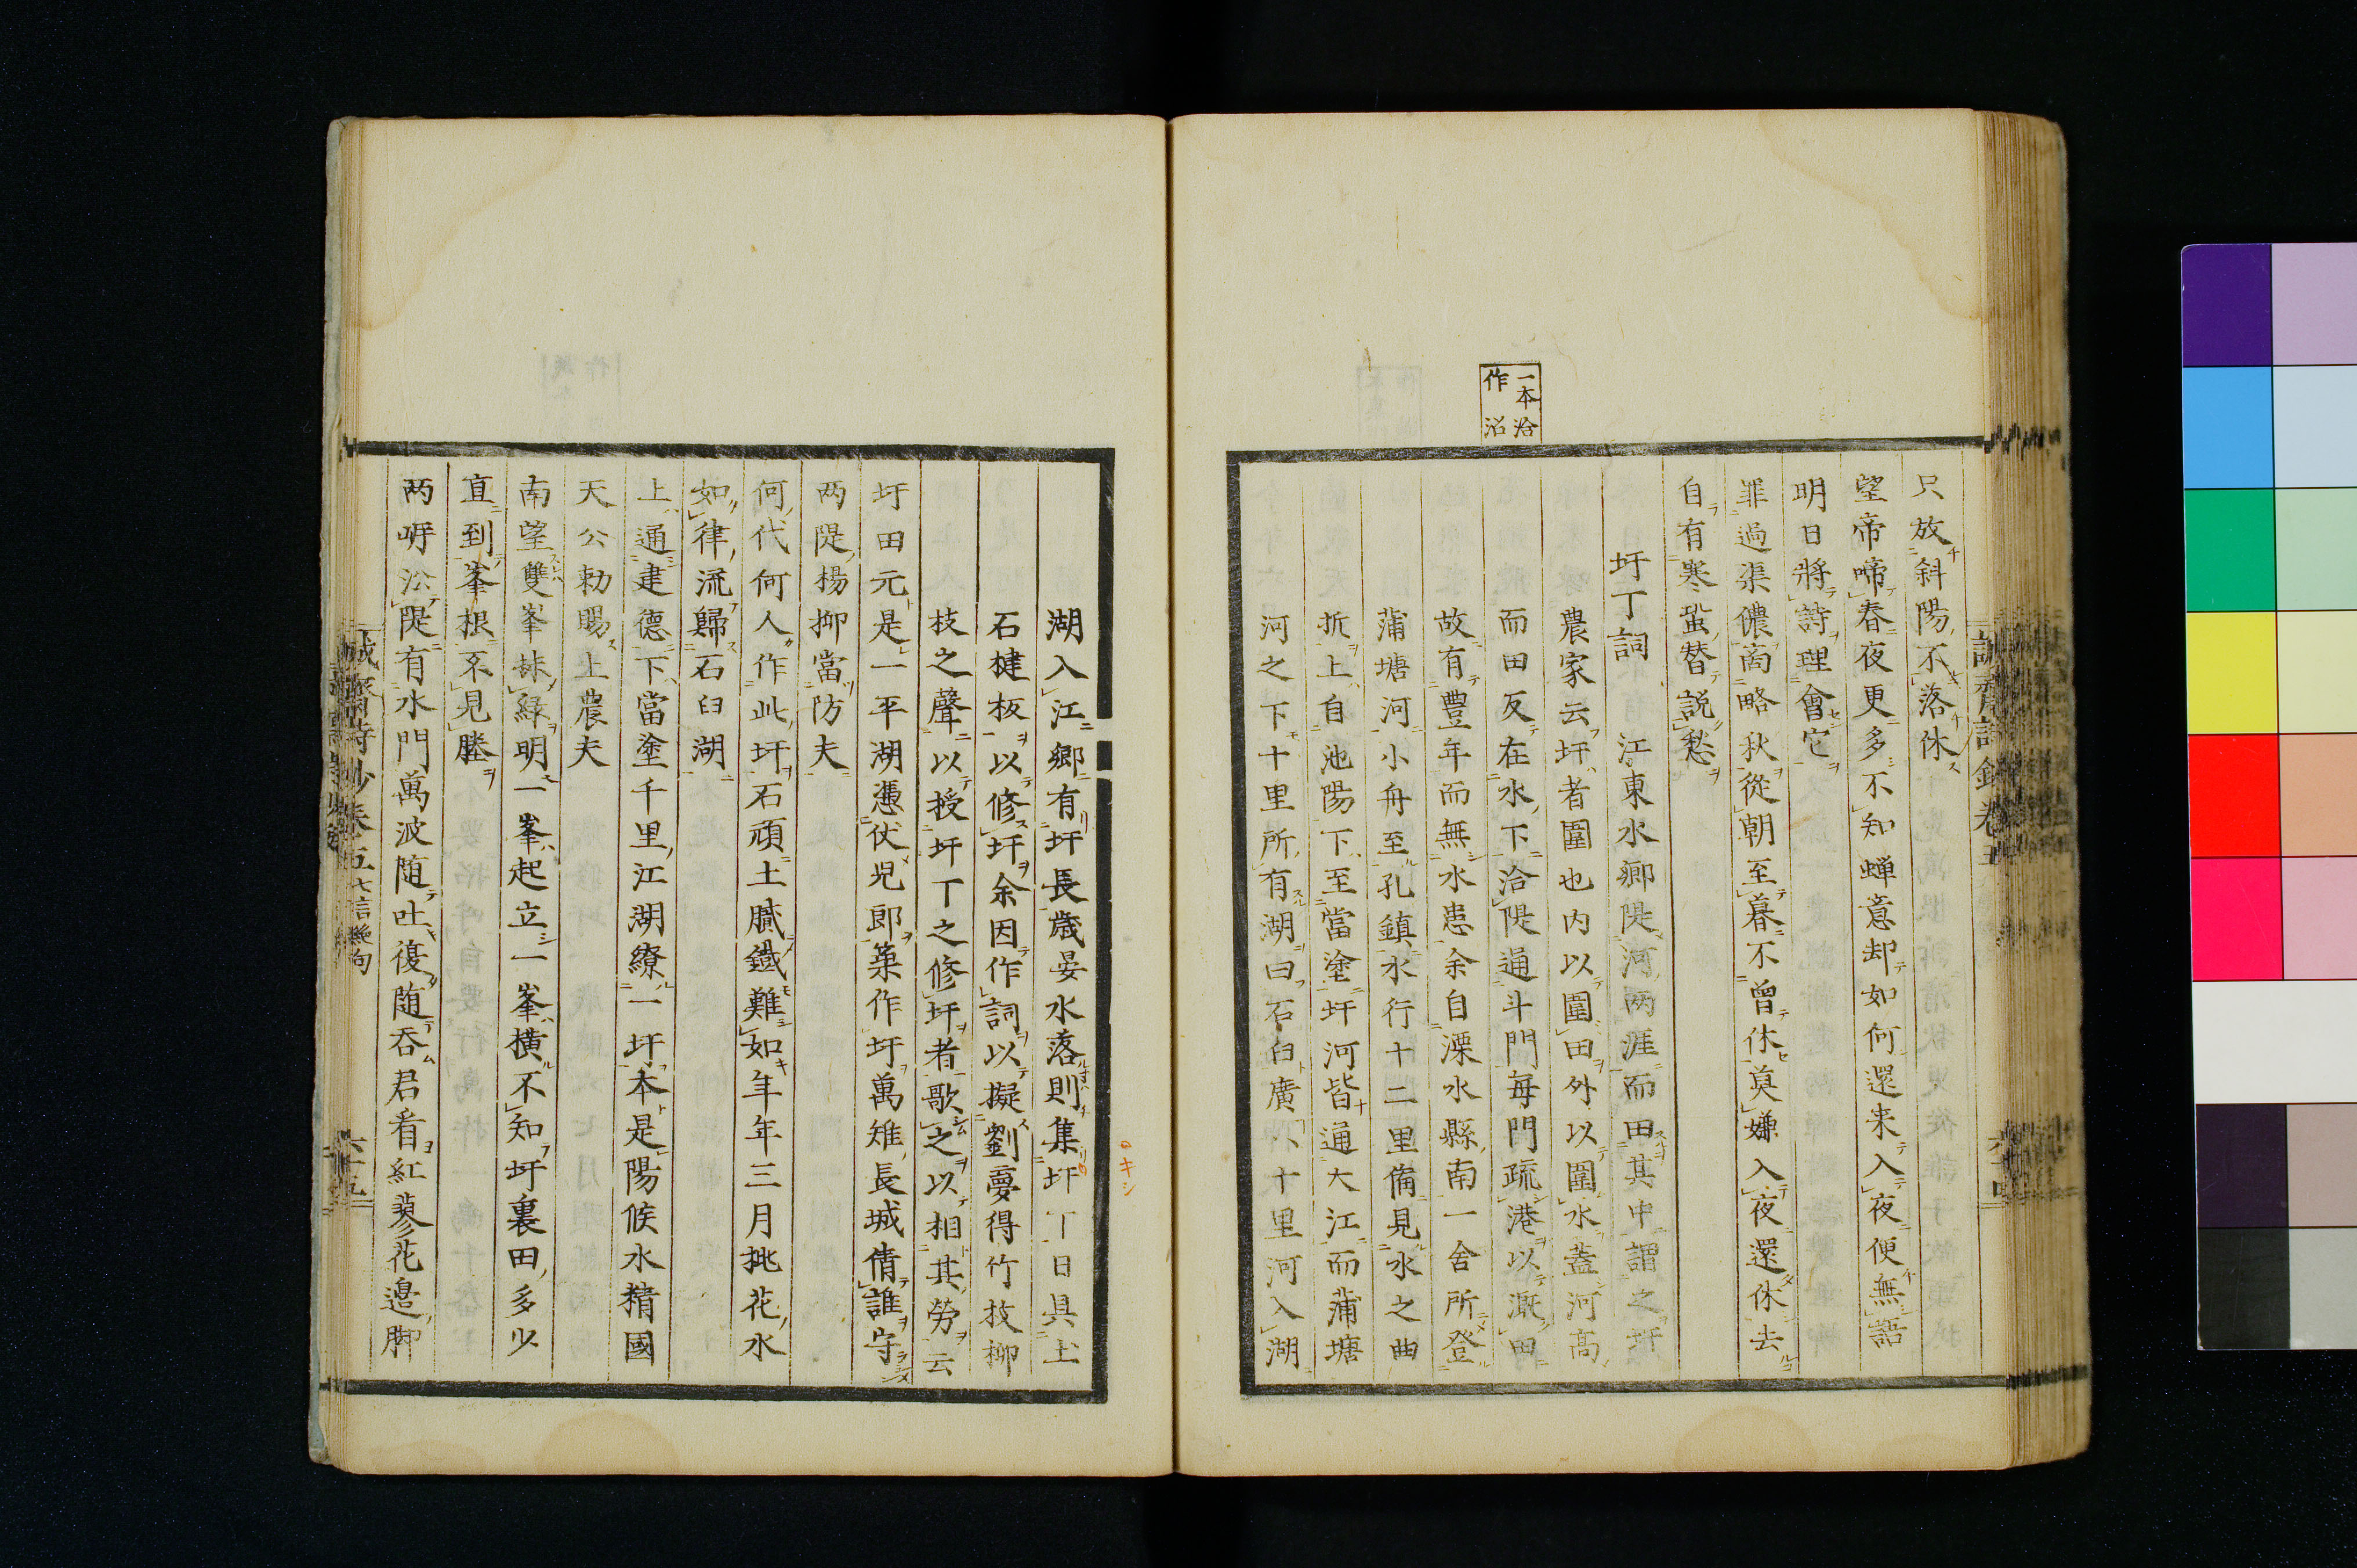 一本洽
作沿
只放斜陽不落休
望帝啼春夜更多不知蝉意却如何還来入夜便無語
明日將詩理會它
罪過渠儂商略秋從朝至暮不曾休莫嫌入夜還休去
自有寒蛩替説愁
圩丁詞 江東水鄉隄河兩涯而田其中謂之圩
農家云圩者圍也内以圍田外以圍水蓋河高
而田反在水下洽隄通斗門每門疏港以溉田
故有豊年而無水患余自溧水縣南一舍所登
蒲塘河小舟至孔鎮水行十二里備見水之曲
折上自池陽下至當塗圩河皆通大江而蒲塘
河之下十里所有湖曰石臼廣八十里河入湖
湖入江鄉有圩長歳晏水落則集圩丁日具土
石楗板以修圩余因作詞以擬劉夢得竹枝柳
枝之聲以授圩丁之修圩者歌之以相其勞云
圩田元是一平湖憑仗兒郎築作圩萬雉長城倩誰守
两隄楊柳當防夫
何代何人作此圩石頑土膩鐵難如年年三月挑花水
如律流歸石臼湖
上通建德下當塗千里江湖繚一圩本是陽侯水精國
天公勅賜上農夫
南望雙峯抹緑明一峯起立一峯横不知圩裏田多少
直到峯根不見塍
两岸沿隄有水門萬波随吐復随吞君看紅蓼花邉脚